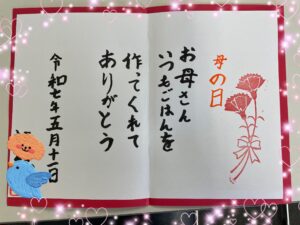 母の日
お母さん
いつもごはんを
作ってくれて
ありがとう
令和七年五月十一日